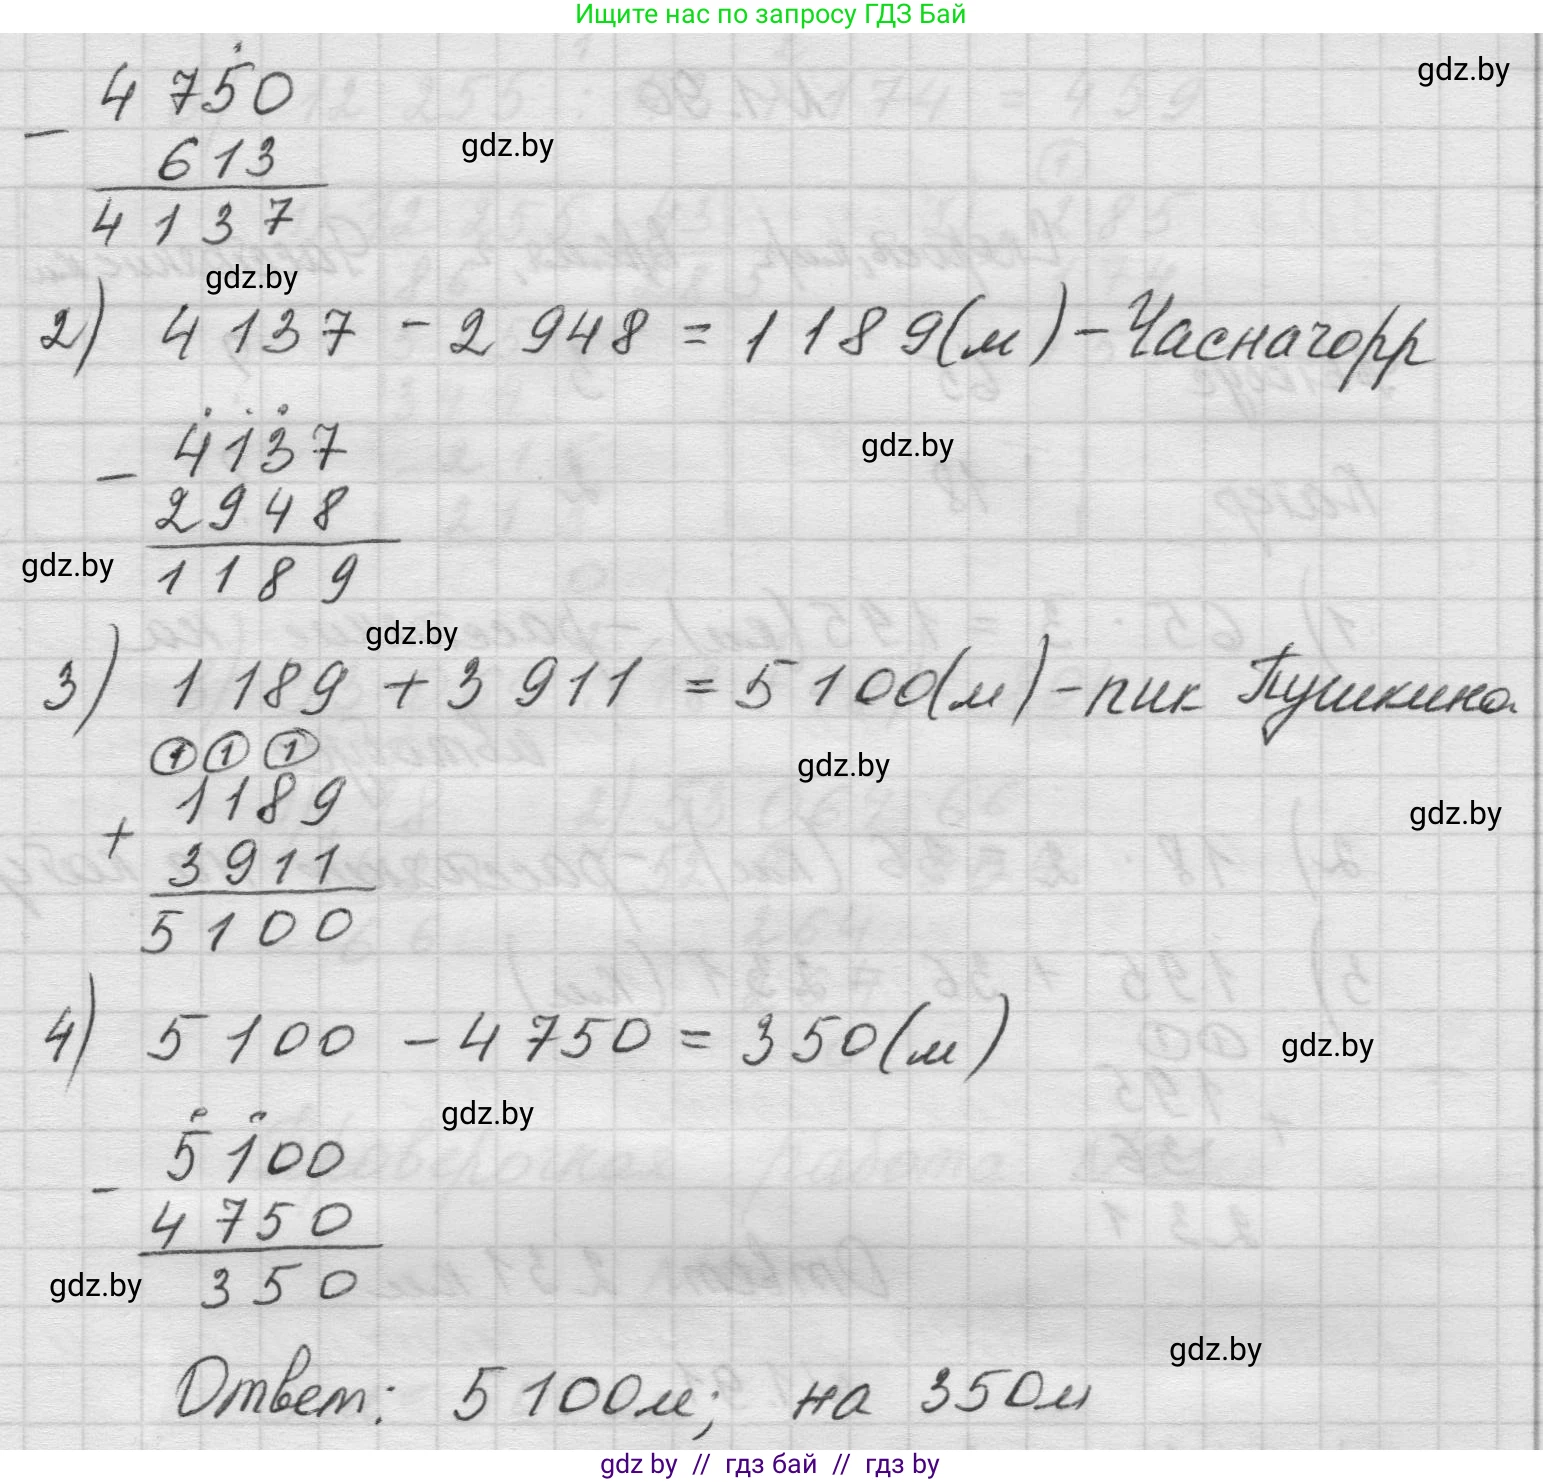 Ищите нас по запросу ГДЗ Бай
gdz.by
4 750
gdz.by
- 613
4 137
gdz.by
2) 4 137 - 2 948 = 1 189(м) - Часначорр
gdz.by
4137
- 2948
gdz.by
1189
gdz.by
3) 1 189 + 3 911 = 5 100(м) - пик Пушкина
1 1 1
gdz.by
1189
gdz.by
+ 3911
5100
4) 5 100 - 4 750 = 350(м)
gdz.by
gdz.by
5100
- 4750
gdz.by
350
gdz.by
Ответ: 5 100м; на 350м
gdz by // гдз бай // гдз by